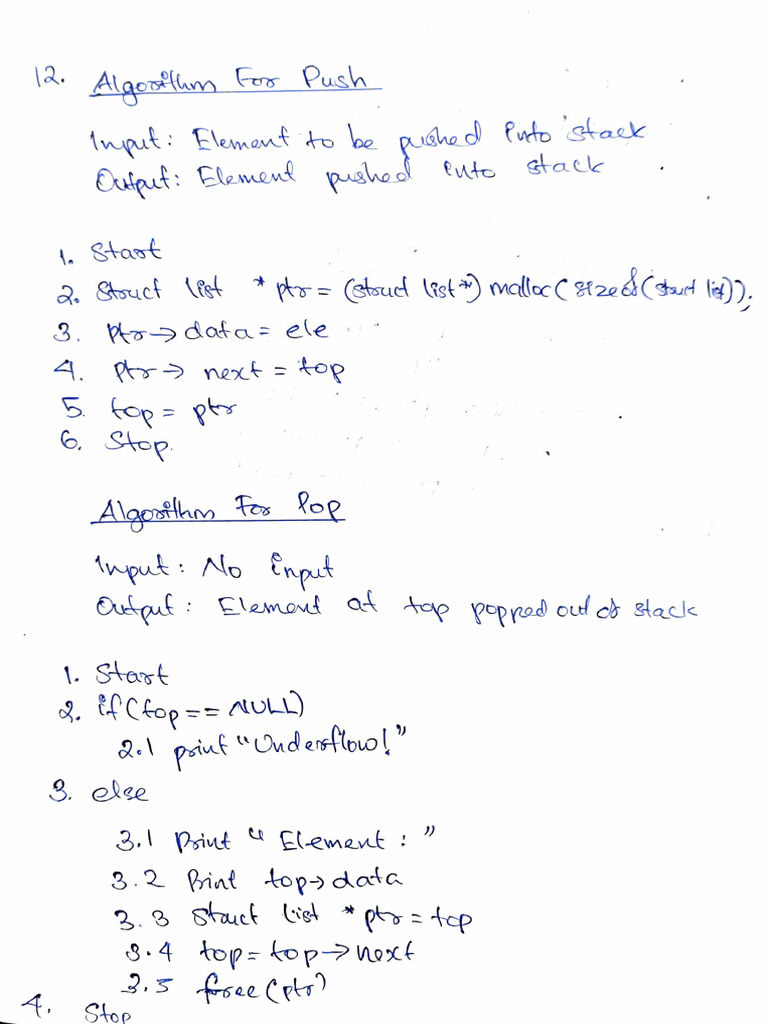 12. Algorithm For Push
Input: Element to be pushed into stack
Output: Element pushed into stack
1. Start
2. Struct list *ptr = (struct list*) malloc(sizeof(struct list));
3. ptr→data = ele
4. ptr→ next = top
5. top = ptr
6. Stop.
Algorithm For Pop
Input: No input
Output: Element at top popped out of stack
1. Start
2. if(top == NULL)
2.1 print "Underflow!"
3. else
3.1 Print "Element: "
3.2 Print top→data
3.3 Struct list *ptr = top
3.4 top = top→next
3.5 free(ptr)
4. Stop